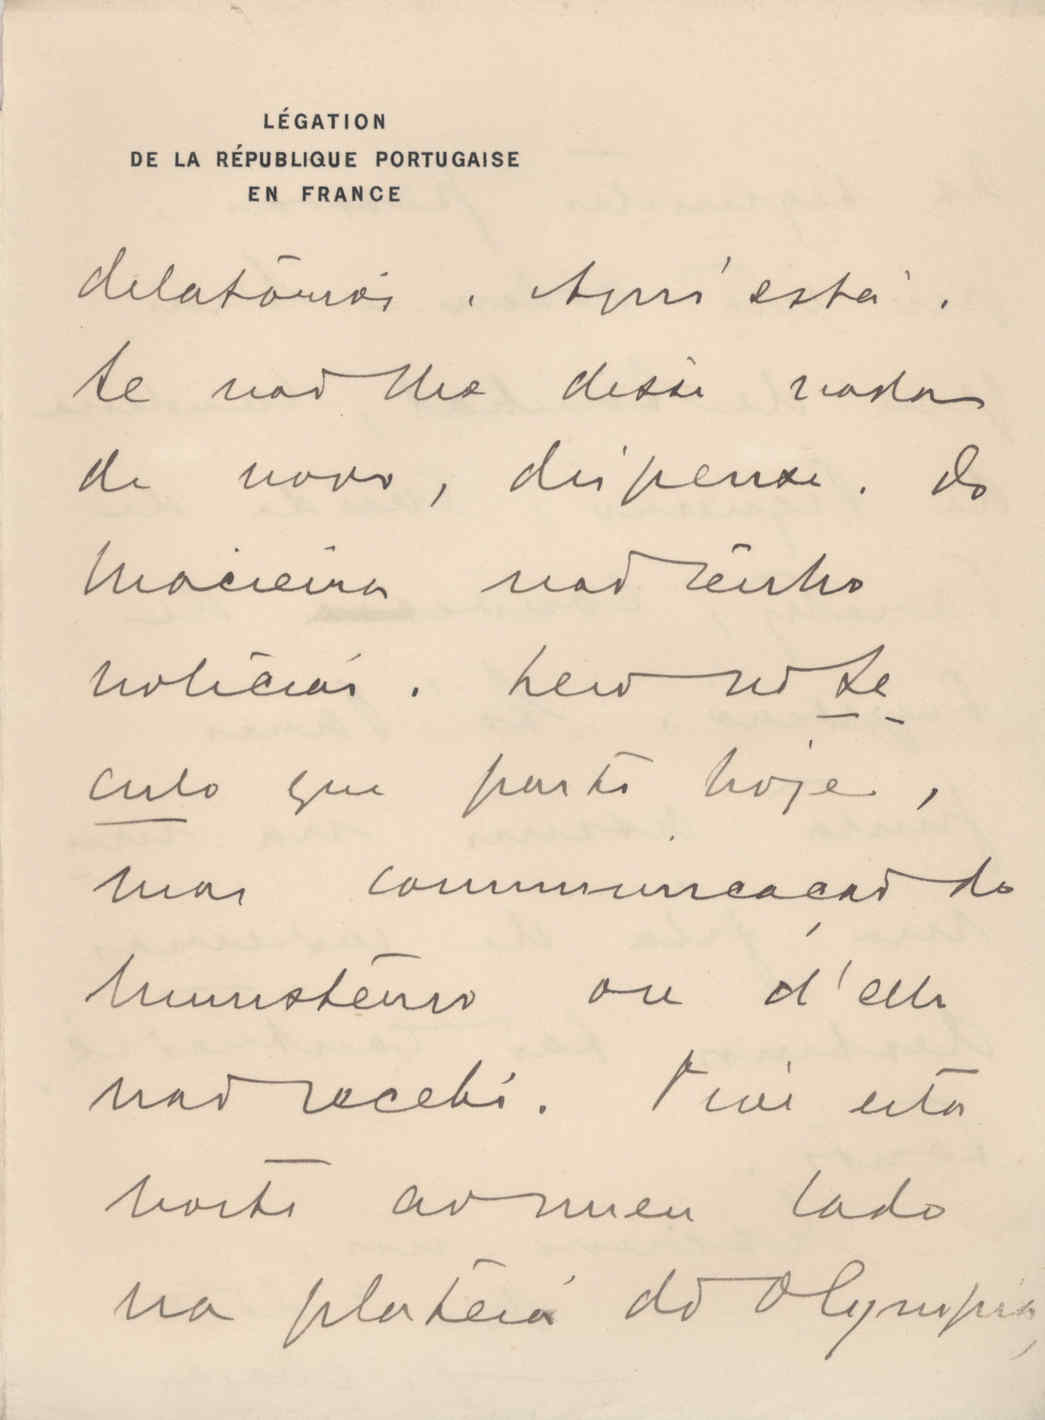 LÉGATION
DE LA RÉPUBLIQUE PORTUGAISE
EN FRANCE
delatórios. Aqui está.
Se não lhe disse nada
de novo, dispense. Do
Macieira não tenho
noticias. Leio no Se
culo que parte hoje,
mas communicação do
Ministério ou d'elle
não recebi. Tive esta
noite ao meu lado
na plateia do Olympia,